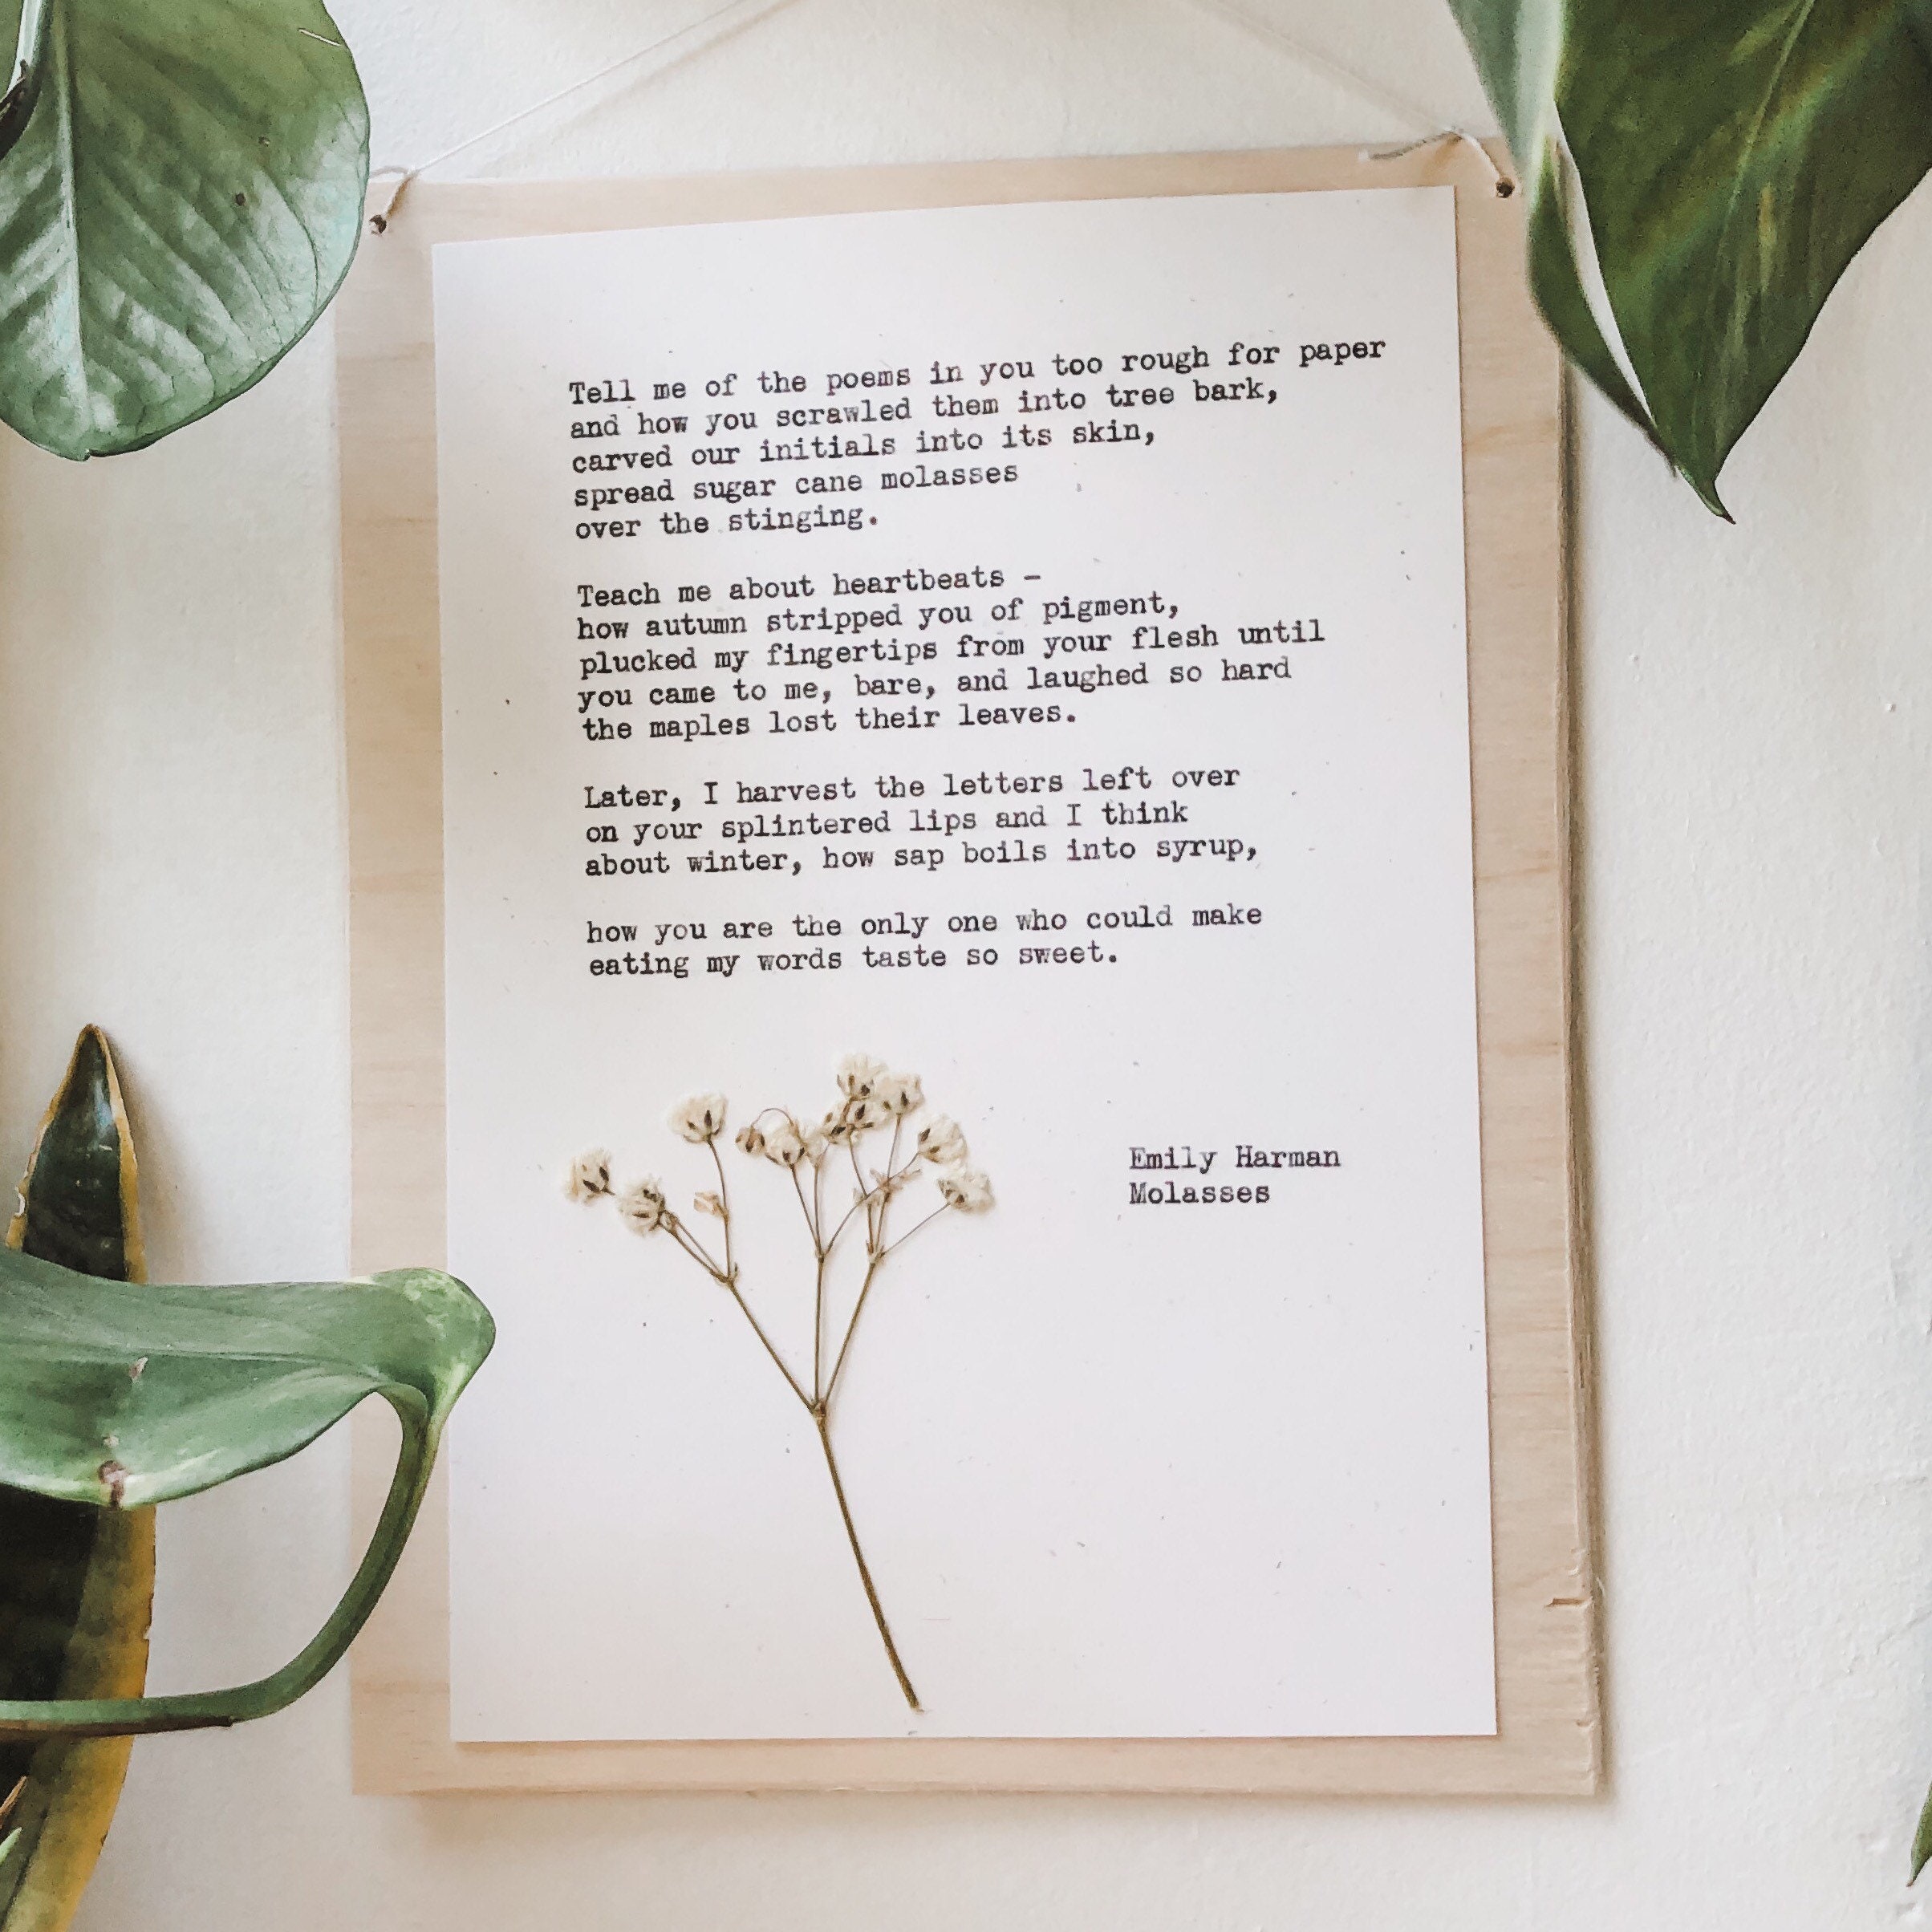 Tell me of the poems in you too rough for paper
and how you scrawled them into tree bark,
carved our initials into its skin,
spread sugar cane molasses
over the stinging.
Teach me about heartbeats –
how autumn stripped you of pigment,
plucked my fingertips from your flesh until
you came to me, bare, and laughed so hard
the maples lost their leaves.
Later, I harvest the letters left over
on your splintered lips and I think
about winter, how sap boils into syrup,
how you are the only one who could make
eating my words taste so sweet.
Emily Harman
Molasses